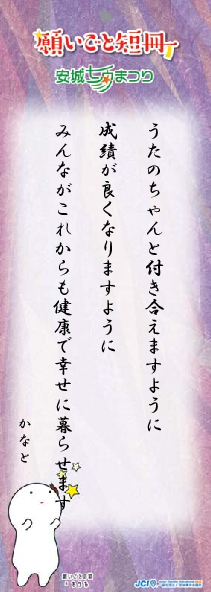 願いごと短冊
安城七夕まつり
うたのちゃんと付き合えますように
成績が良くなりますように
みんながこれからも健康で幸せに暮らせます
かなと
JCI